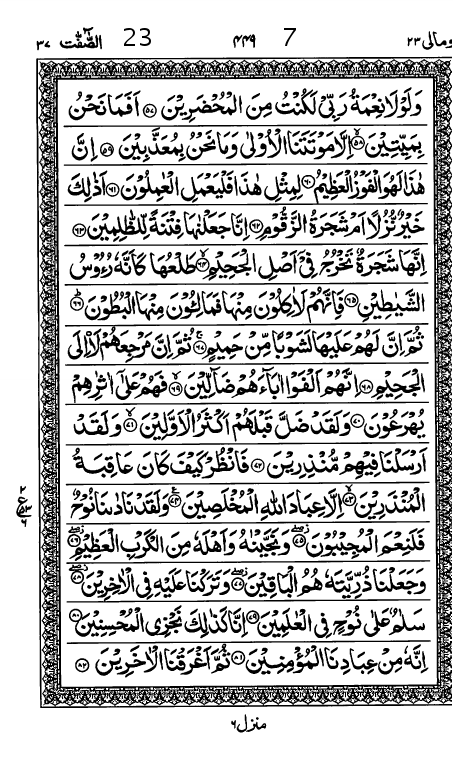 ومالی ٢٣ 7 ٤٤٩ 23 الصّٰٓفّٰت ٣٧
وَلَوْلَا نِعْمَةُ رَبِّیْ لَكُنْتُ مِنَ الْمُحْضَرِیْنَ ﴿٥٧﴾ اَفَمَا نَحْنُ
بِمَیِّتِیْنَ ﴿٥٨﴾ اِلَّا مَوْتَتَنَا الْاُوْلٰی وَمَا نَحْنُ بِمُعَذَّبِیْنَ ﴿٥٩﴾ اِنَّ
هٰذَا لَهُوَ الْفَوْزُ الْعَظِیْمُ ﴿٦٠﴾ لِمِثْلِ هٰذَا فَلْیَعْمَلِ الْعٰمِلُوْنَ ﴿٦١﴾ اَذٰلِكَ
خَیْرٌ نُّزُلًا اَمْ شَجَرَةُ الزَّقُّوْمِ ﴿٦٢﴾ اِنَّا جَعَلْنٰهَا فِتْنَةً لِّلظّٰلِمِیْنَ ﴿٦٣﴾
اِنَّهَا شَجَرَةٌ تَخْرُجُ فِیْۤ اَصْلِ الْجَحِیْمِ ﴿٦٤﴾ طَلْعُهَا كَاَنَّهٗ رُءُوْسُ
الشَّیٰطِیْنِ ﴿٦٥﴾ فَاِنَّهُمْ لَاٰكِلُوْنَ مِنْهَا فَمَالِـُٔوْنَ مِنْهَا الْبُطُوْنَ ﴿٦٦﴾
ثُمَّ اِنَّ لَهُمْ عَلَیْهَا لَشَوْبًا مِّنْ حَمِیْمٍ ﴿٦٧﴾ ثُمَّ اِنَّ مَرْجِعَهُمْ لَا۟اِلَی
الْجَحِیْمِ ﴿٦٨﴾ اِنَّهُمْ اَلْفَوْا اٰبَآءَهُمْ ضَآلِّیْنَ ﴿٦٩﴾ فَهُمْ عَلٰۤی اٰثٰرِهِمْ
یُهْرَعُوْنَ ﴿٧٠﴾ وَلَقَدْ ضَلَّ قَبْلَهُمْ اَكْثَرُ الْاَوَّلِیْنَ ﴿٧١﴾ وَلَقَدْ
اَرْسَلْنَا فِیْهِمْ مُّنْذِرِیْنَ ﴿٧٢﴾ فَانْظُرْ كَیْفَ كَانَ عَاقِبَةُ
الْمُنْذَرِیْنَ ﴿٧٣﴾ اِلَّا عِبَادَ اللّٰهِ الْمُخْلَصِیْنَ ﴿٧٤﴾ وَلَقَدْ نَادٰىنَا نُوْحٌ
٢ ع ٥٣ ٦
فَلَنِعْمَ الْمُجِیْبُوْنَ ﴿٧٥﴾ وَنَجَّیْنٰهُ وَاَهْلَهٗ مِنَ الْكَرْبِ الْعَظِیْمِ ﴿٧٦﴾
وَجَعَلْنَا ذُرِّیَّتَهٗ هُمُ الْبٰقِیْنَ ﴿٧٧﴾ وَتَرَكْنَا عَلَیْهِ فِی الْاٰخِرِیْنَ ﴿٧٨﴾
سَلٰمٌ عَلٰی نُوْحٍ فِی الْعٰلَمِیْنَ ﴿٧٩﴾ اِنَّا كَذٰلِكَ نَجْزِی الْمُحْسِنِیْنَ ﴿٨٠﴾
اِنَّهٗ مِنْ عِبَادِنَا الْمُؤْمِنِیْنَ ﴿٨١﴾ ثُمَّ اَغْرَقْنَا الْاٰخَرِیْنَ ﴿٨٢﴾
منزل ٦